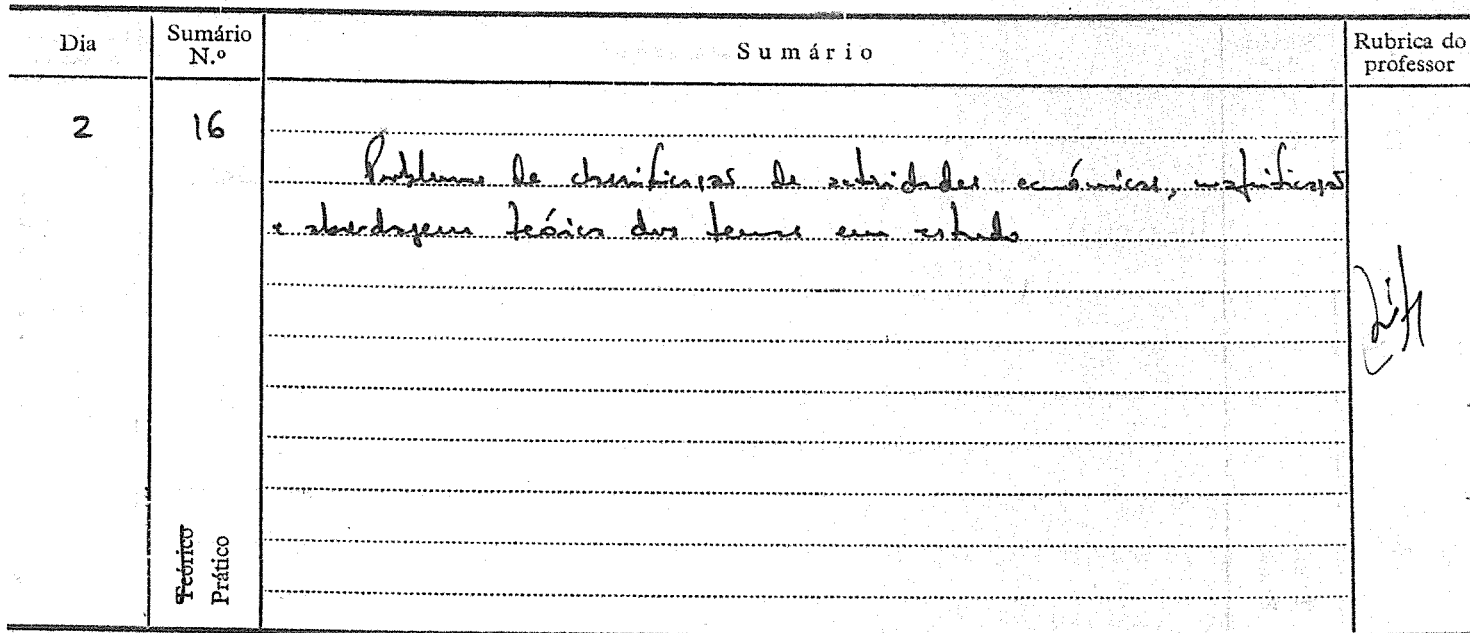 Dia
Sumário N.º
Sumário
Rubrica do professor
2
16
Problema de classificação de actividades económicas,
e abordagem teórica dos temas em estudo
Teórico
Prático